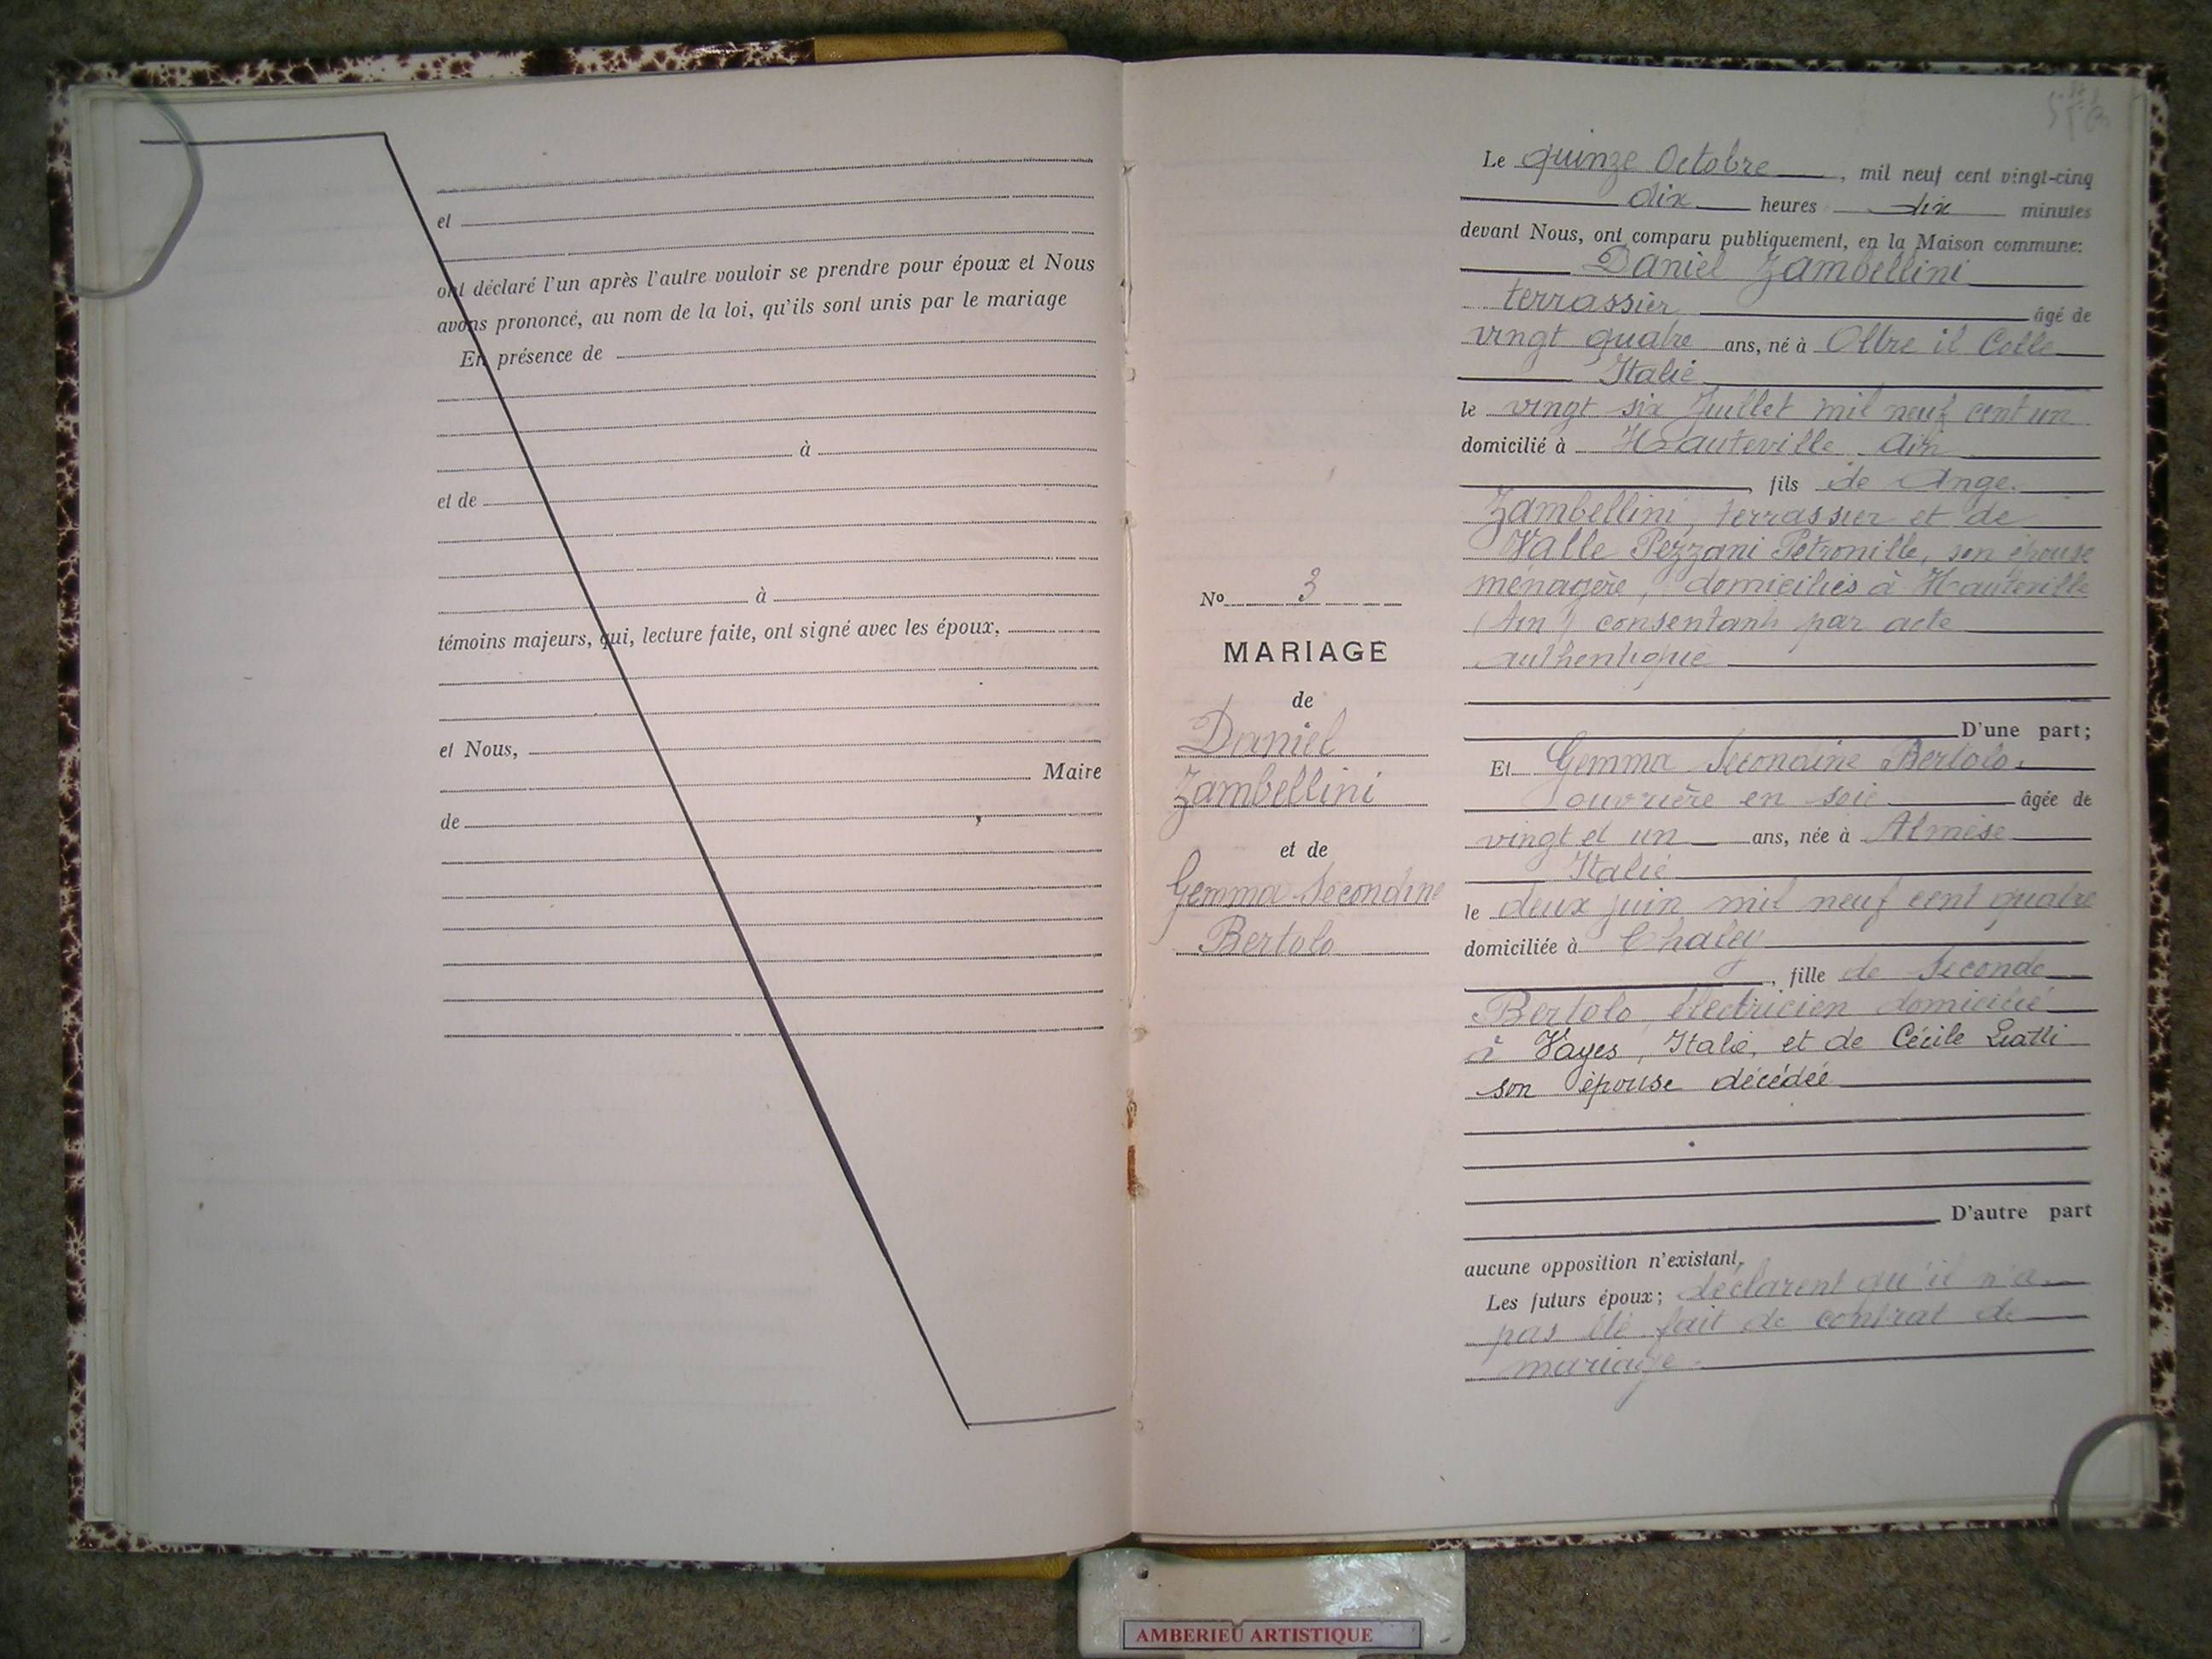 et
ont déclaré l'un après l'autre vouloir se prendre pour époux et Nous
avons prononcé, au nom de la loi, qu'ils sont unis par le mariage
En présence de
à
et de
à
témoins majeurs, qui, lecture faite, ont signé avec les époux,
et Nous,
Maire
de
No 3
MARIAGE
de
Daniel
Zambellini
et de
Gemma Secondine
Bertolo
Le quinze Octobre, mil neuf cent vingt-cinq
dix heures dix minutes
devant Nous, ont comparu publiquement, en la Maison commune:
Daniel Zambellini
terrassier âgé de
vingt quatre ans, né à Oltre il Colle
Italie
le vingt six Juillet mil neuf cent un
domicilié à Hauteville Ain
, fils de Ange
Zambellini, terrassier et de
Valle Pezzani Petronille, son épouse
ménagère, domiciliés à Hauteville
(Ain) consentants par acte
authentique
D'une part;
Et Gemma Secondine Bertolo,
ouvrière en soie âgée de
vingt et un ans, née à Almèse
Italie
le deux juin mil neuf cent quatre
domiciliée à Chaley
, fille de Secondo
Bertolo, électricien domicilié
à Vayes, Italie, et de Cécile Liatti
son épouse décédée
D'autre part
aucune opposition n'existant,
Les futurs époux; déclarent qu'il n'a
pas été fait de contrat de
mariage.
AMBERIEU ARTISTIQUE